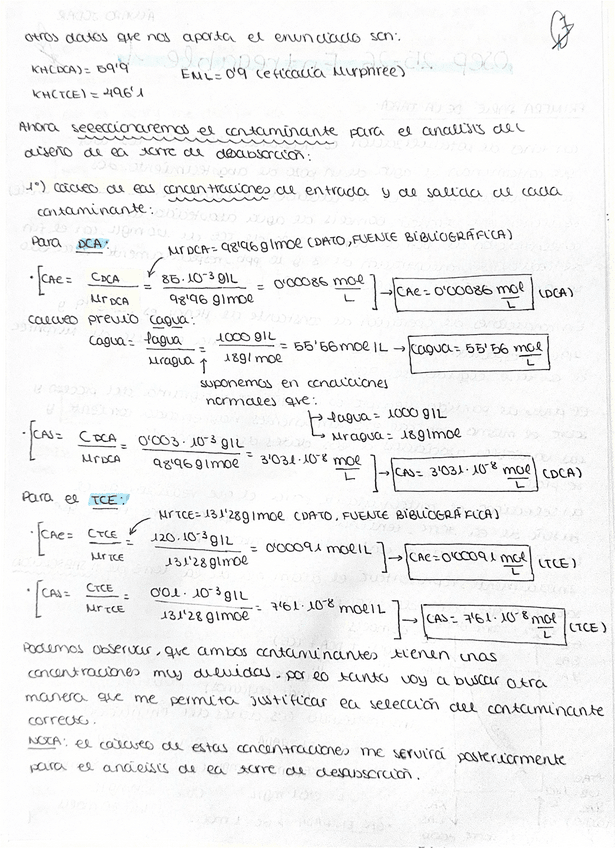 otros datos que nos aporta el enunciado son:
KH(DCA) = 59'9 EML = 0'9 (eficacia Murphree)
KH(TCE) = 496'1
Ahora seleccionaremos el contaminante para el análisis del
diseño de la torre de desabsorción:
1º) cálculo de las concentraciones de entrada y de salida de cada
contaminante:
Para DCA: MrDCA = 98'96 g/mol (DATO, FUENTE BIBLIOGRÁFICA)
· [CAe = CDCA / MrDCA = 85·10⁻³ g/L / 98'96 g/mol = 0'00086 mol/L ] → CAe = 0'00086 mol/L (DCA)
cálculo previo Cagua:
Cagua = ρagua / Mragua = 1000 g/L / 18 g/mol = 55'56 mol/L → Cagua = 55'56 mol/L
suponemos en condiciones
normales que:
↳ ρagua = 1000 g/L
↳ Mragua = 18 g/mol
· [CAS = CDCA / MrDCA = 0'003·10⁻³ g/L / 98'96 g/mol = 3'031·10⁻⁸ mol/L ] → CAS = 3'031·10⁻⁸ mol/L (DCA)
Para el TCE: MrTCE = 131'28 g/mol (DATO, FUENTE BIBLIOGRÁFICA)
· [CAe = CTCE / MrTCE = 120·10⁻³ g/L / 131'28 g/mol = 0'00091 mol/L ] → CAe = 0'00091 mol/L (TCE)
· [CAS = CTCE / MrTCE = 0'01·10⁻³ g/L / 131'28 g/mol = 7'61·10⁻⁸ mol/L ] → CAS = 7'61·10⁻⁸ mol/L (TCE)
Podemos observar, que ambos contaminantes tienen unas
concentraciones muy diluidas, por lo tanto voy a buscar otra
manera que me permita justificar la selección del contaminante
correcto.
NOTA: el cálculo de estas concentraciones me servirá posteriormente
para el análisis de la torre de desabsorción.